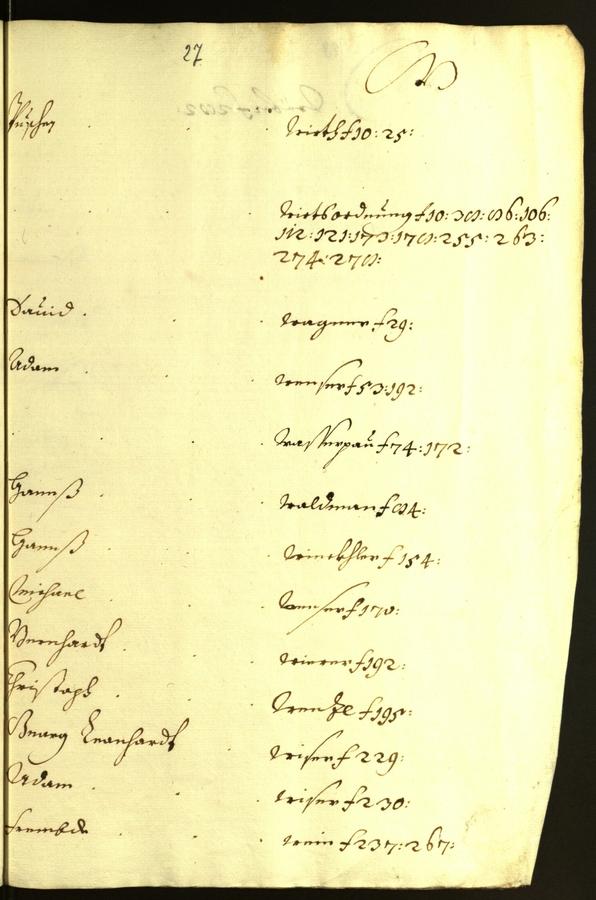 27
W
Püscher Wirth f 10: 25:
Wirtsordnung f 10: 38: 86: 106:
112: 121: 173: 178: 255: 263:
274: 278:
Dauid Wagner f 29:
Adam Wenser f 53: 192:
Wasserpau f 74: 172:
Hannß Waldman f 84:
Hannß Winckhler f 154:
Michael Wenser f 170:
Bernhardt Wierer f 192:
Christoph Wenzl f 195:
Georg Leonhardt Wiser f 229:
Adam Wiser f 230:
frembde Wein f 237: 267: